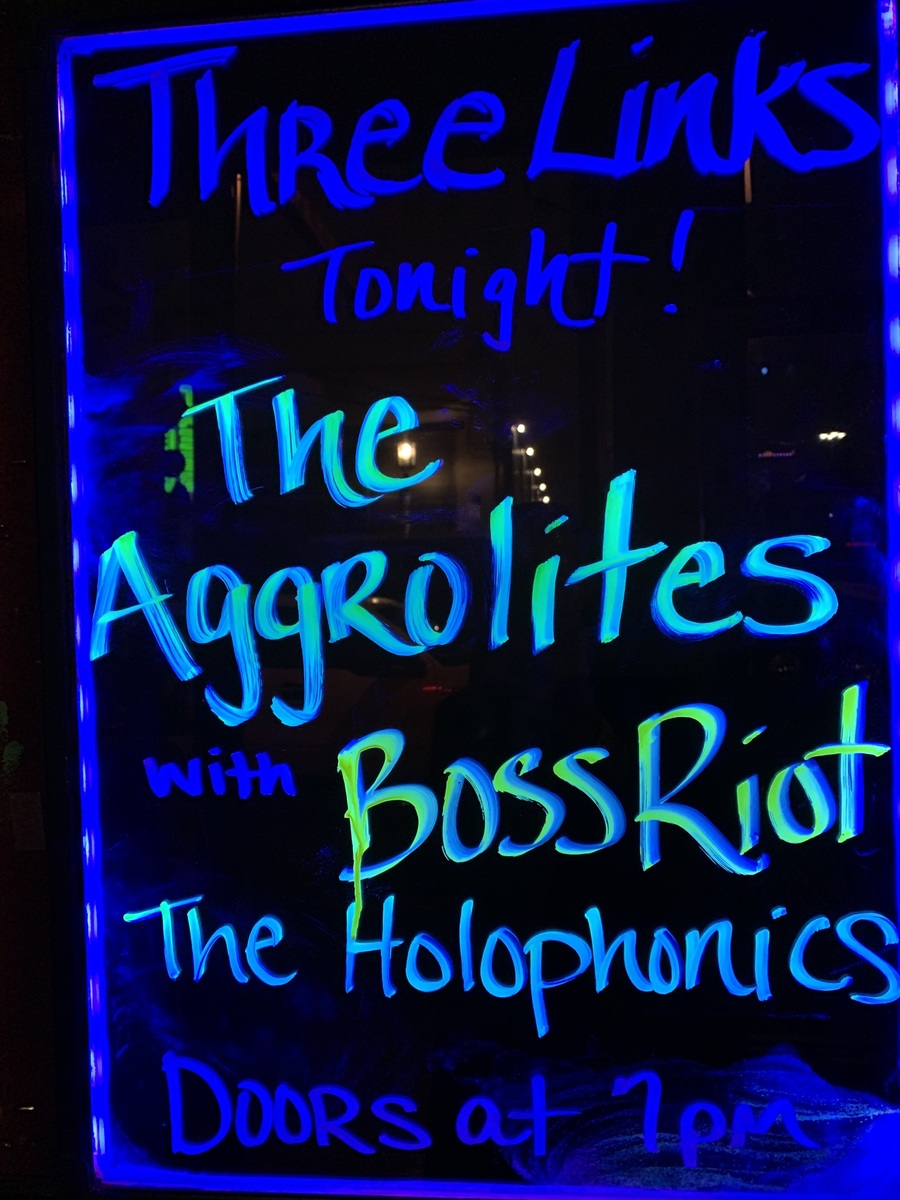 Three Links
Tonight!
The
Aggrolites
with Boss Riot
The Holophonics
Doors at 7pm